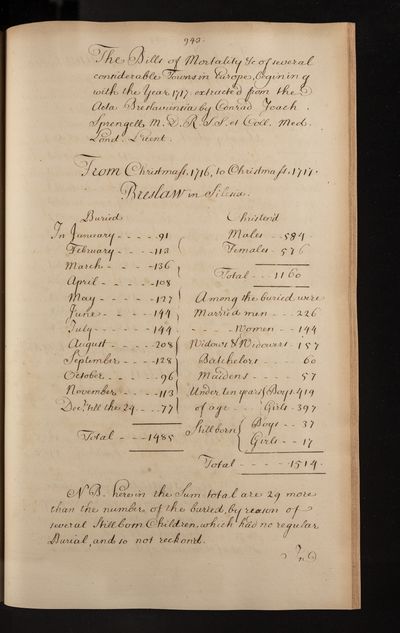 943.
The Bills of Mortality &c of several
considerable Towns in Europe, begining
with the Year 1717. extracted from the
Acta Breslaviensia by Conrad Joach.
Sprengell M.D. R.S.S. et Coll. Med.
Lond. Licent.
From Christmass. 1716, to Christmass. 1717.
Breslaw in Silesia.
Buried
In January - - - - 91
February - - - - 113
March - - - - 136
April - - - - 108
May - - - - 127
June - - - - 144
July - - - - 144
August - - - - 208
September - - - - 128
October - - - - 96
November - - - - 113
Decr. till the 24 - - - 77
Total - - - 1485
Christen'd
Males - - 584
Females - 576
Total - - - 1160
Among the buried were
Married men - - - 226
- - - - Women - - 144
Widows & Widowers - 157
Batchelors - - - - 60
Maidens - - - - 57
Under ten years { Boys - 419
of age - - - { Girls - 397
Stillborn { Boys - - 37
Girls - - 17
Total - - - - - 1514.
N B. herein the Sum total are 29 more
than the number of the buried, by reason of
several still born Children, which had no regular
Burial, and so not reckon'd.